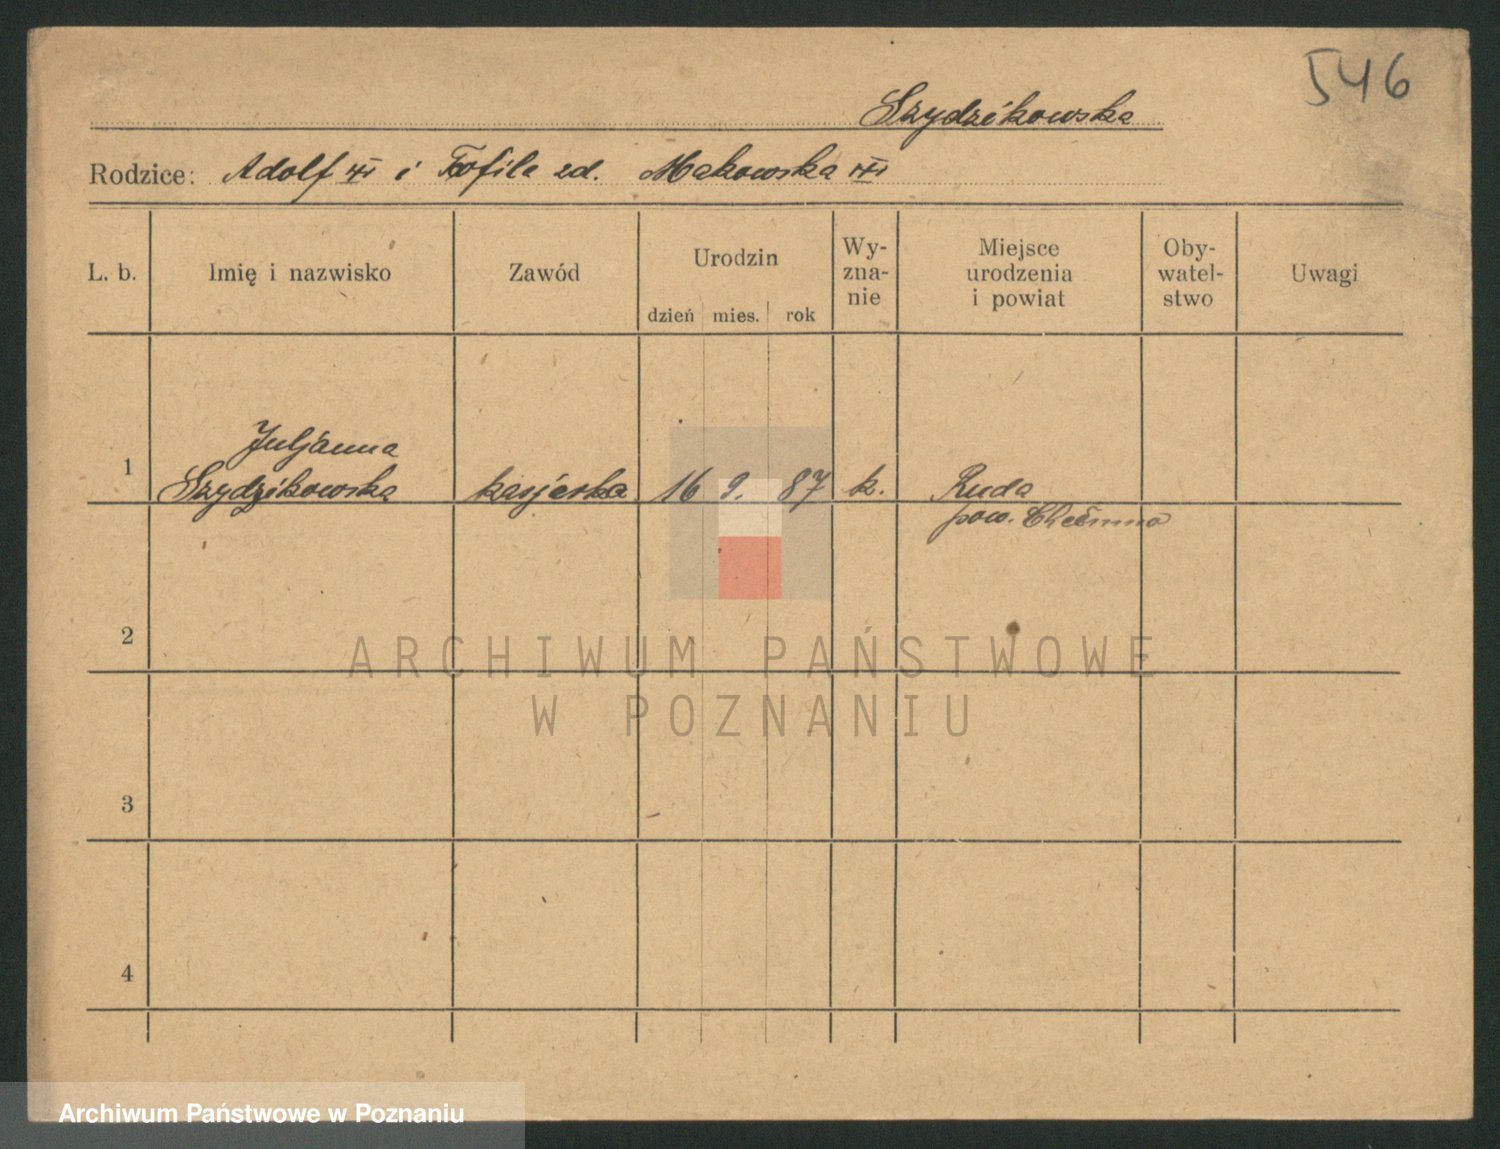 546
Szydzikowska
Rodzice: Adolf VI i Tofila zd. Makowska VII
L. b. Imię i nazwisko Zawód Urodzin dzień mies. rok Wy-zna-nie Miejsce urodzenia i powiat Oby-watel-stwo Uwagi
Juljanna
1 Szydzikowska kasjerka 16 9. 87 k. Ruda
pow. Chełmno
2
ARCHIWUM PAŃSTWOWE
W POZNANIU
3
4
Archiwum Państwowe w Poznaniu